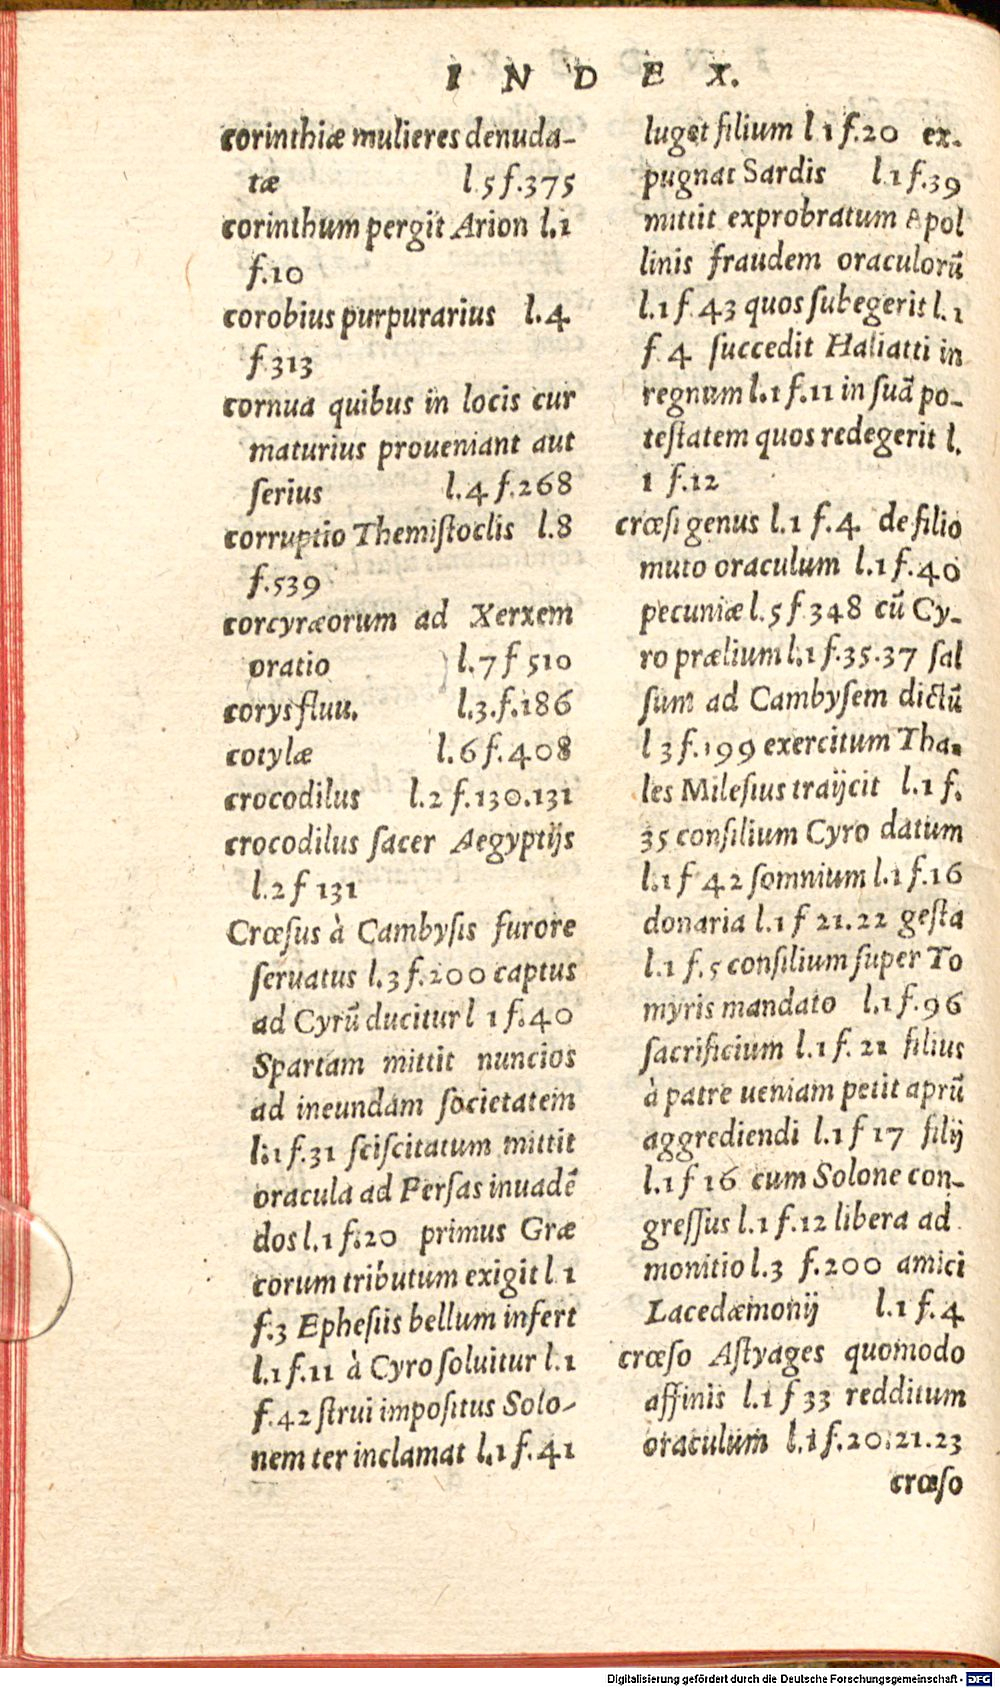 I N D E X.
corinthiæ mulieres denuda-
tæ l.5 f.375
corinthum pergit Arion l.1
f.10
corobius purpurarius l.4
f.313
cornua quibus in locis cur
maturius proueniant aut
ſerius l.4 f.268
corruptio Themiſtoclis l.8
f.539
corcyræorum ad Xerxem
oratio l.7 f 510
corys fluu. l.3.f.186
cotylæ l.6 f.408
crocodilus l.2 f.130.131
crocodilus ſacer Aegyptijs
l.2 f 131
Crœſus à Cambyſis furore
ſeruatus l.3 f.200 captus
ad Cyrũ ducitur l 1 f.40
Spartam mittit nuncios
ad ineundam ſocietatem
l.1 f.31 ſciſcitatum mittit
oracula ad Perſas inuadẽ
dos l.1 f.20 primus Græ
corum tributum exigit l 1
f.3 Epheſiis bellum infert
l.1 f.11 à Cyro ſoluitur l.1
f.42 ſtrui impoſitus Solo-
nem ter inclamat l.1 f.41
luget filium l 1 f.20 ex-
pugnat Sardis l.1 f.39
mittit exprobratum Apol
linis fraudem oraculorũ
l.1 f 43 quos ſubegerit l.1
f 4 ſuccedit Haliatti in
regnum l.1 f.11 in ſuã po-
teſtatem quos redegerit l.
1 f.12
crœſi genus l.1 f.4 de filio
muto oraculum l.1 f.40
pecuniæ l.5 f 348 cũ Cy-
ro prælium l.1 f.35.37 ſal
ſum ad Cambyſem dictũ
l 3 f.199 exercitum Tha-
les Mileſius traijcit l.1 f.
35 conſilium Cyro datum
l.1 f 42 ſomnium l.1 f.16
donaria l.1 f 21.22 geſta
l.1 f.5 conſilium ſuper To
myris mandato l.1 f.96
ſacrificium l.1 f.21 filius
à patre ueniam petit aprũ
aggrediendi l.1 f 17 filij
l.1 f 16 cum Solone con-
greſſus l.1 f.12 libera ad
monitio l.3 f.200 amici
Lacedæmonij l.1 f.4
crœſo Aſtyages quomodo
affinis l.1 f 33 redditum
oraculum l.1 f.20.21.23
crœſo
Digitalisierung gefördert durch die Deutsche Forschungsgemeinschaft - DFG